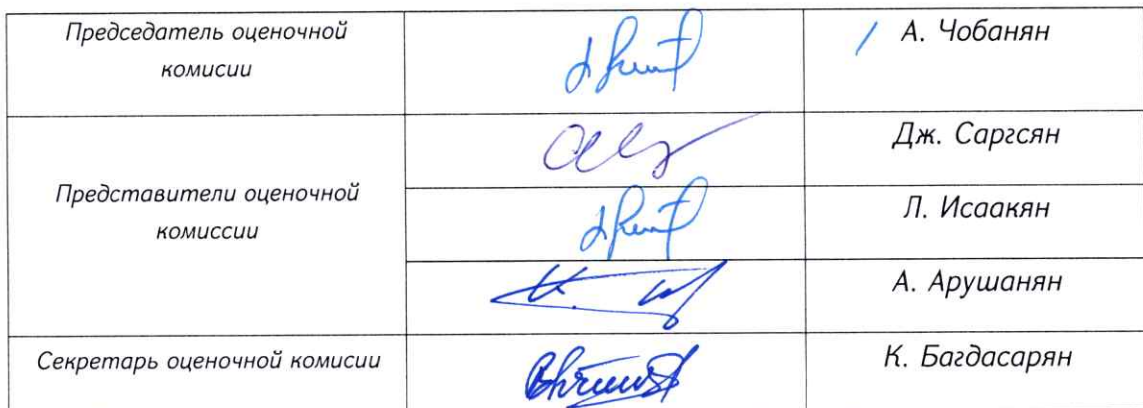 Председатель оценочной
комисии
А. Чобанян
Дж. Саргсян
Представители оценочной
комиссии
Л. Исаакян
А. Арушанян
Секретарь оценочной комисии
К. Багдасарян